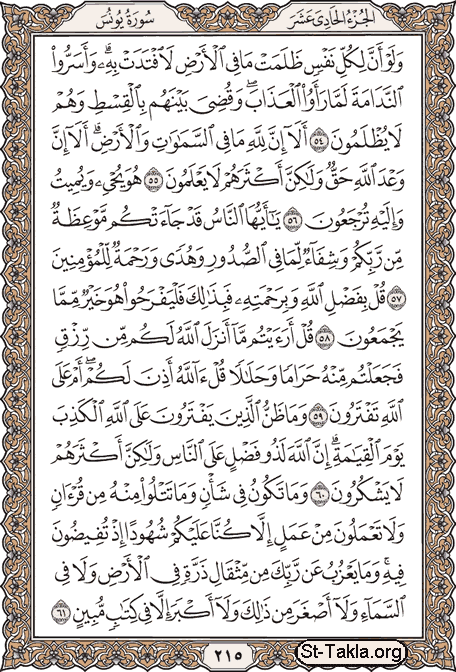 الجزء الحادي عشر
سورة يونس
وَلَوْ أَنَّ لِكُلِّ نَفْسٍ ظَلَمَتْ مَا فِي ٱلْأَرْضِ لَٱفْتَدَتْ بِهِۦۗ وَأَسَرُّوا۟
ٱلنَّدَامَةَ لَمَّا رَأَوُا۟ ٱلْعَذَابَۖ وَقُضِيَ بَيْنَهُم بِٱلْقِسْطِ وَهُمْ
لَا يُظْلَمُونَ ٥٤ أَلَآ إِنَّ لِلَّهِ مَا فِي ٱلسَّمَٰوَٰتِ وَٱلْأَرْضِۗ أَلَآ إِنَّ
وَعْدَ ٱللَّهِ حَقٌّ وَلَٰكِنَّ أَكْثَرَهُمْ لَا يَعْلَمُونَ ٥٥ هُوَ يُحْيِۦ وَيُمِيتُ
وَإِلَيْهِ تُرْجَعُونَ ٥٦ يَٰٓأَيُّهَا ٱلنَّاسُ قَدْ جَآءَتْكُم مَّوْعِظَةٌ
مِّن رَّبِّكُمْ وَشِفَآءٌ لِّمَا فِي ٱلصُّدُورِ وَهُدًى وَرَحْمَةٌ لِّلْمُؤْمِنِينَ
٥٧ قُلْ بِفَضْلِ ٱللَّهِ وَبِرَحْمَتِهِۦ فَبِذَٰلِكَ فَلْيَفْرَحُوا۟ هُوَ خَيْرٌ مِّمَّا
يَجْمَعُونَ ٥٨ قُلْ أَرَءَيْتُم مَّآ أَنزَلَ ٱللَّهُ لَكُم مِّن رِّزْقٍ
فَجَعَلْتُم مِّنْهُ حَرَامًا وَحَلَٰلًا قُلْ ءَآللَّهُ أَذِنَ لَكُمْۖ أَمْ عَلَى
ٱللَّهِ تَفْتَرُونَ ٥٩ وَمَا ظَنُّ ٱلَّذِينَ يَفْتَرُونَ عَلَى ٱللَّهِ ٱلْكَذِبَ
يَوْمَ ٱلْقِيَٰمَةِۗ إِنَّ ٱللَّهَ لَذُو فَضْلٍ عَلَى ٱلنَّاسِ وَلَٰكِنَّ أَكْثَرَهُمْ
لَا يَشْكُرُونَ ٦٠ وَمَا تَكُونُ فِي شَأْنٍ وَمَا تَتْلُوا۟ مِنْهُ مِن قُرْءَانٍ
وَلَا تَعْمَلُونَ مِنْ عَمَلٍ إِلَّا كُنَّا عَلَيْكُمْ شُهُودًا إِذْ تُفِيضُونَ
فِيهِۚ وَمَا يَعْزُبُ عَن رَّبِّكَ مِن مِّثْقَالِ ذَرَّةٍ فِي ٱلْأَرْضِ وَلَا فِي
ٱلسَّمَآءِ وَلَآ أَصْغَرَ مِن ذَٰلِكَ وَلَآ أَكْبَرَ إِلَّا فِي كِتَٰبٍ مُّبِينٍ ٦١
٢١٥
St-Takla.org